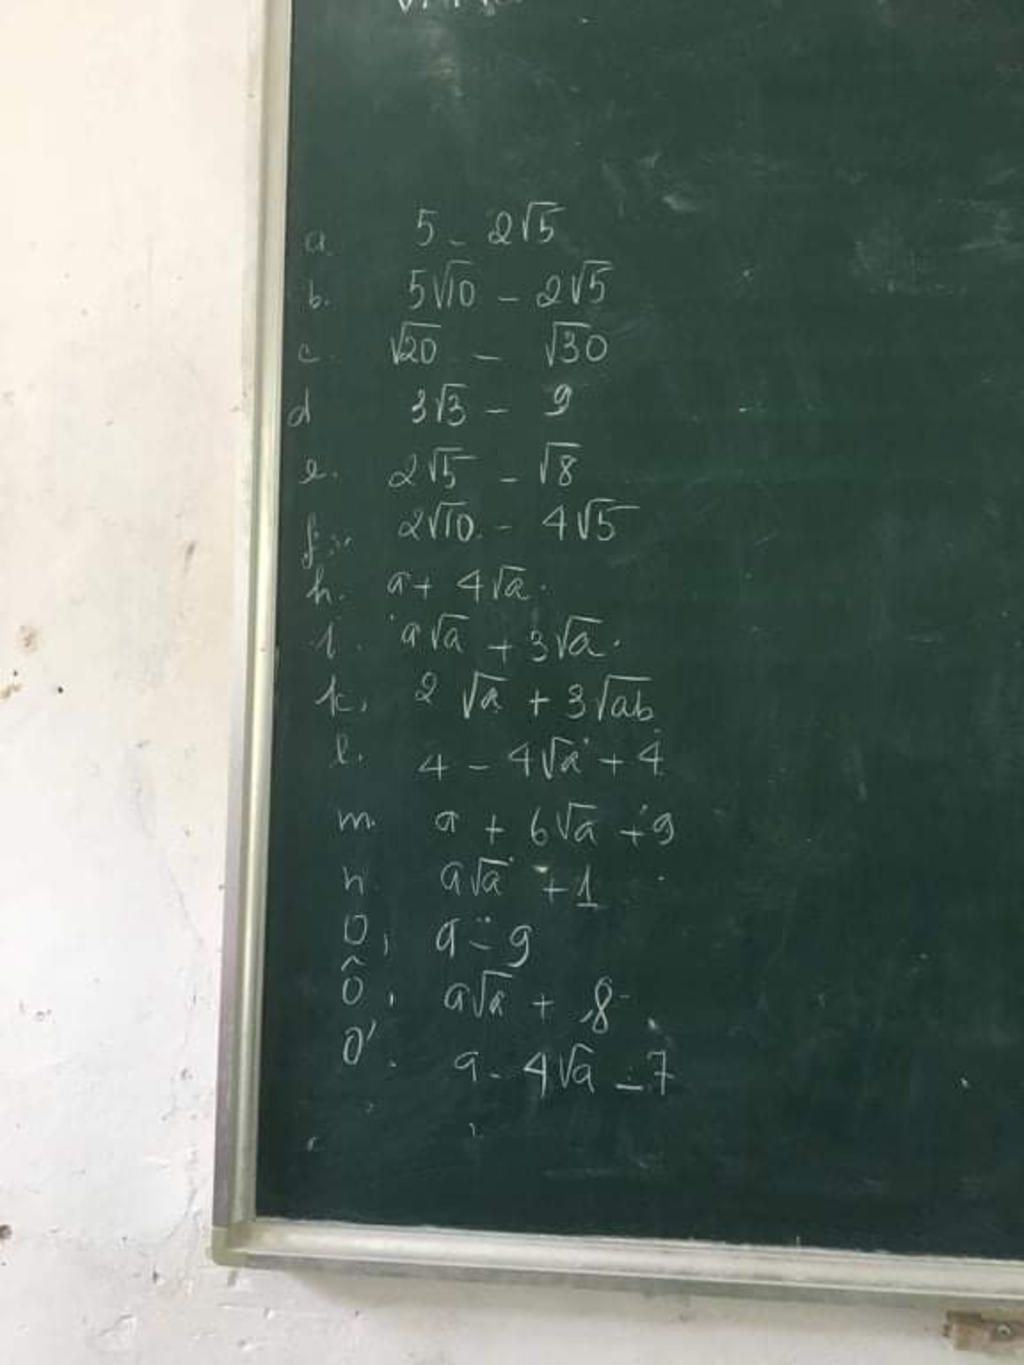 a. 5 - 2√5
b. 5√10 - 2√5
c. √20 - √30
d 3√3 - 9
e. 2√5 - √8
f. 2√10 - 4√5
h. a + 4√a
i. a√a + 3√a
k, 2 √a + 3√ab
l. 4 - 4√a + 4
m. a + 6√a + 9
n. a√a + 1
o, a - 9
ô, a√a + 8
ơ. a - 4√a - 7